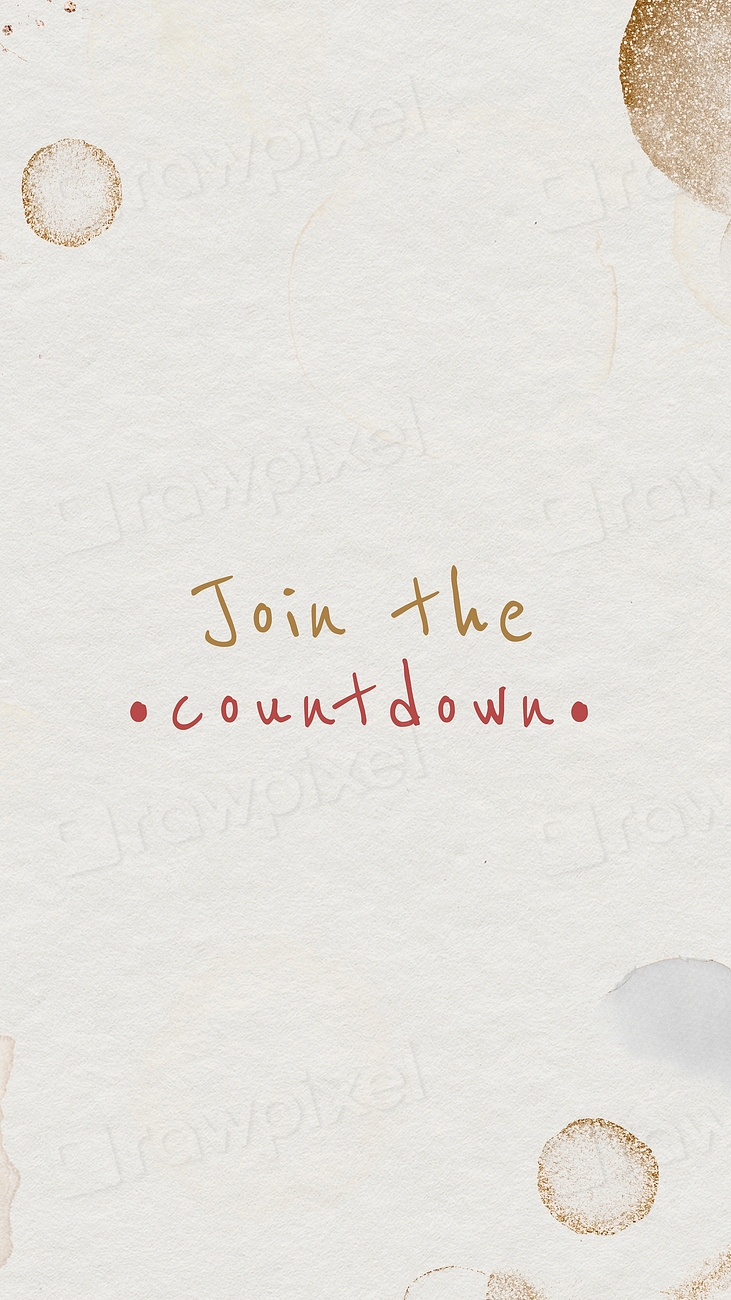 Join the
•countdown•
rawpixel
rawpixel
rawpixel
rawpixel